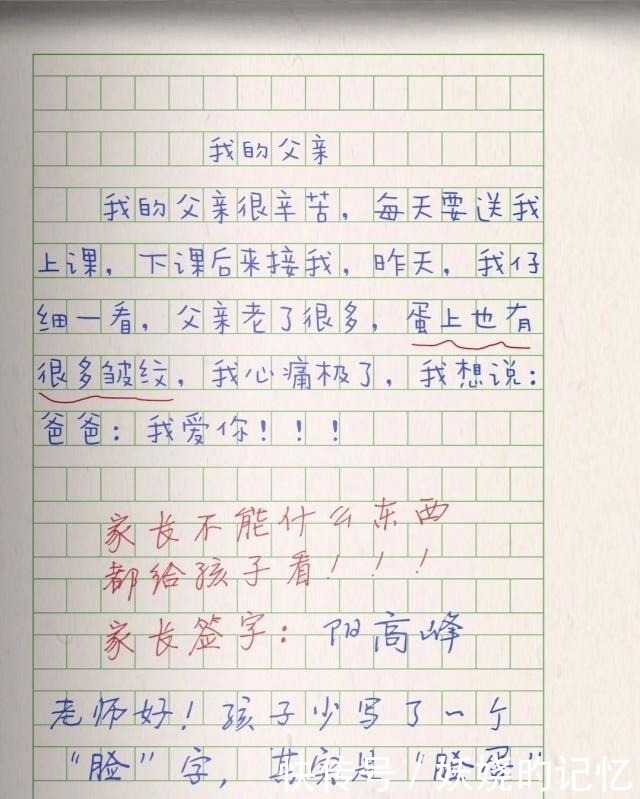 我的父亲
我的父亲很辛苦，每天要送我
上课，下课后来接我，昨天，我仔
细一看，父亲老了很多，蛋上也有
很多皱纹，我心痛极了，我想说：
爸爸：我爱你！！！
家长不能什么东西
都给孩子看！！！
家长签字：阳高峰
老师好！孩子少写了一个
“脸”字，其实是“脸蛋”
快传号/妖娆的记忆